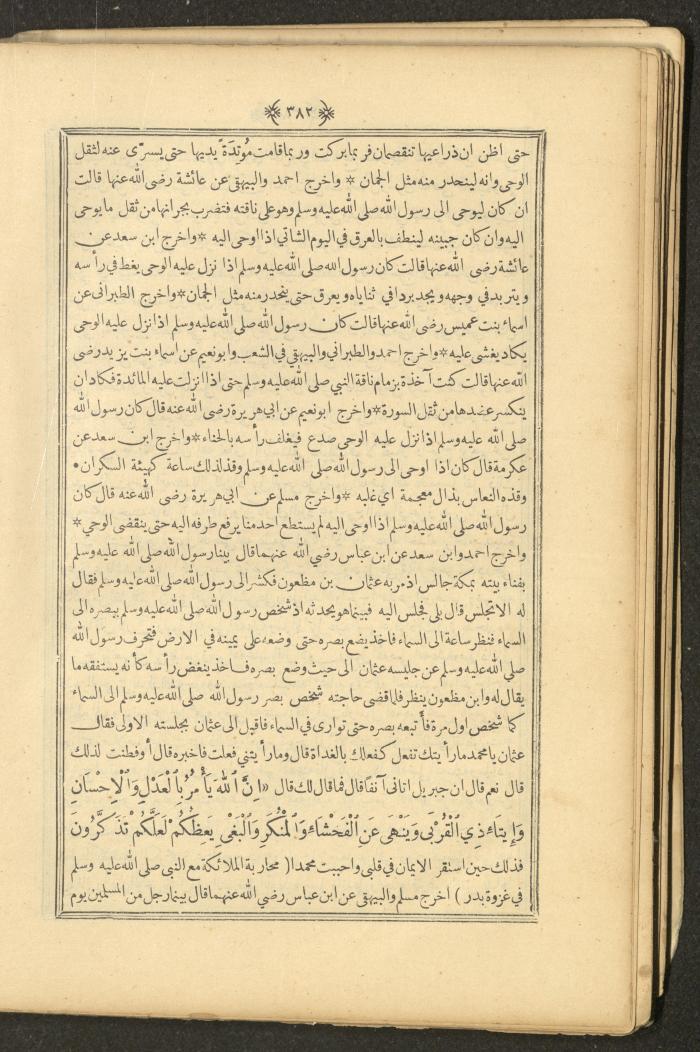 ﴿ ٣٨٢ ﴾
حتى اظن ان ذراعيها تنقصمان فربما بركت وربما قامت مُوتدَةً يديها حتى يسرّى عنه لثقل
الوحى وانه لينحدر منه مثل الجمان * واخرج احمد والبيهقي عن عائشة رضى الله عنها قالت
ان كان ليوحى الى رسول الله صلى الله عليه وسلم وهو على ناقته فتضرب بجرانها من ثقل ما يوحى
اليه وان كان جبينه لينطف بالعرق في اليوم الشاتي اذا اوحى اليه * واخرج ابن سعد عن
عائشة رضى الله عنها قالت كان رسول الله صلى الله عليه وسلم اذا نزل عليه الوحى يغط في رأسه
ويتربد في وجهه ويجد بردا في ثناياه ويعرق حتى ينحدر منه مثل الجمان * واخرج الطبرانى عن
اسماء بنت عميس رضى الله عنها قالت كان رسول الله صلى الله عليه وسلم اذا نزل عليه الوحى
يكاد يغشى عليه * واخرج احمد والطبراني والبيهقي في الشعب وابو نعيم عن اسماء بنت يزيد رضى
الله عنها قالت كنت آخذة بزمام ناقة النبي صلى الله عليه وسلم حتى اذا انزلت عليه المائدة فكاد ان
ينكسر عضدها من ثقل السورة * واخرج ابو نعيم عن ابي هريرة رضى الله عنه قال كان رسول الله
صلى الله عليه وسلم اذا نزل عليه الوحى صدع فيغلف رأسه بالحناء * واخرج ابن سعد عن
عكرمة قال كان اذا اوحى الى رسول الله صلى الله عليه وسلم وقذ لذلك ساعة كهيئة السكران •
وقذه النعاس بذال معجمة اي غلبه * واخرج مسلم عن ابي هريرة رضى الله عنه قال كان
رسول الله صلى الله عليه وسلم اذا اوحى اليه لم يستطع احد منا يرفع طرفه اليه حتى ينقضى الوحي *
واخرج احمد وابن سعد عن ابن عباس رضي الله عنهما قال بينا رسول الله صلى الله عليه وسلم
بفناء بيته بمكة جالس اذ مر به عثمان بن مظعون فكشر الى رسول الله صلى الله عليه وسلم فقال
له الا تجلس قال بلى فجلس اليه فبينما هو يحدثه اذ شخص رسول الله صلى الله عليه وسلم ببصره الى
السماء فنظر ساعة الى السماء فاخذ يضع بصره حتى وضعه على يمينه في الارض فتحرف رسول الله
صلى الله عليه وسلم عن جليسه عثمان الى حيث وضع بصره فاخذ ينغض رأسه كأنه يستفقه ما
يقال له وابن مظعون ينظر فلما قضى حاجته شخص بصر رسول الله صلى الله عليه وسلم الى السماء
كما شخص اول مرة فأتبعه بصره حتى توارى في السماء فاقبل الى عثمان بجلسته الاولى فقال
عثمان يا محمد ما رأيتك تفعل كفعلك بالغداة قال وما رأيتني فعلت فاخبره قال أوفطنت لذلك
قال نعم قال ان جبريل اتانى آنفًا قال فما قال لك قال «اِنَّ اللهَ يَأْمُرُ بِالْعَدْلِ وَالْإِحْسَانِ
وَإِيتَاءِ ذِي الْقُرْبَى وَيَنْهَى عَنِ الْفَحْشَاءِ وَالْمُنْكَرِ وَالْبَغْيِ يَعِظُكُمْ لَعَلَّكُمْ تَذَكَّرُونَ
فذلك حين استقر الايمان في قلبي واحببت محمدا ( محاربة الملائكة مع النبي صلى الله عليه وسلم
في غزوة بدر ) اخرج مسلم والبيهقى عن ابن عباس رضي الله عنهما قال بينما رجل من المسلمين يوم